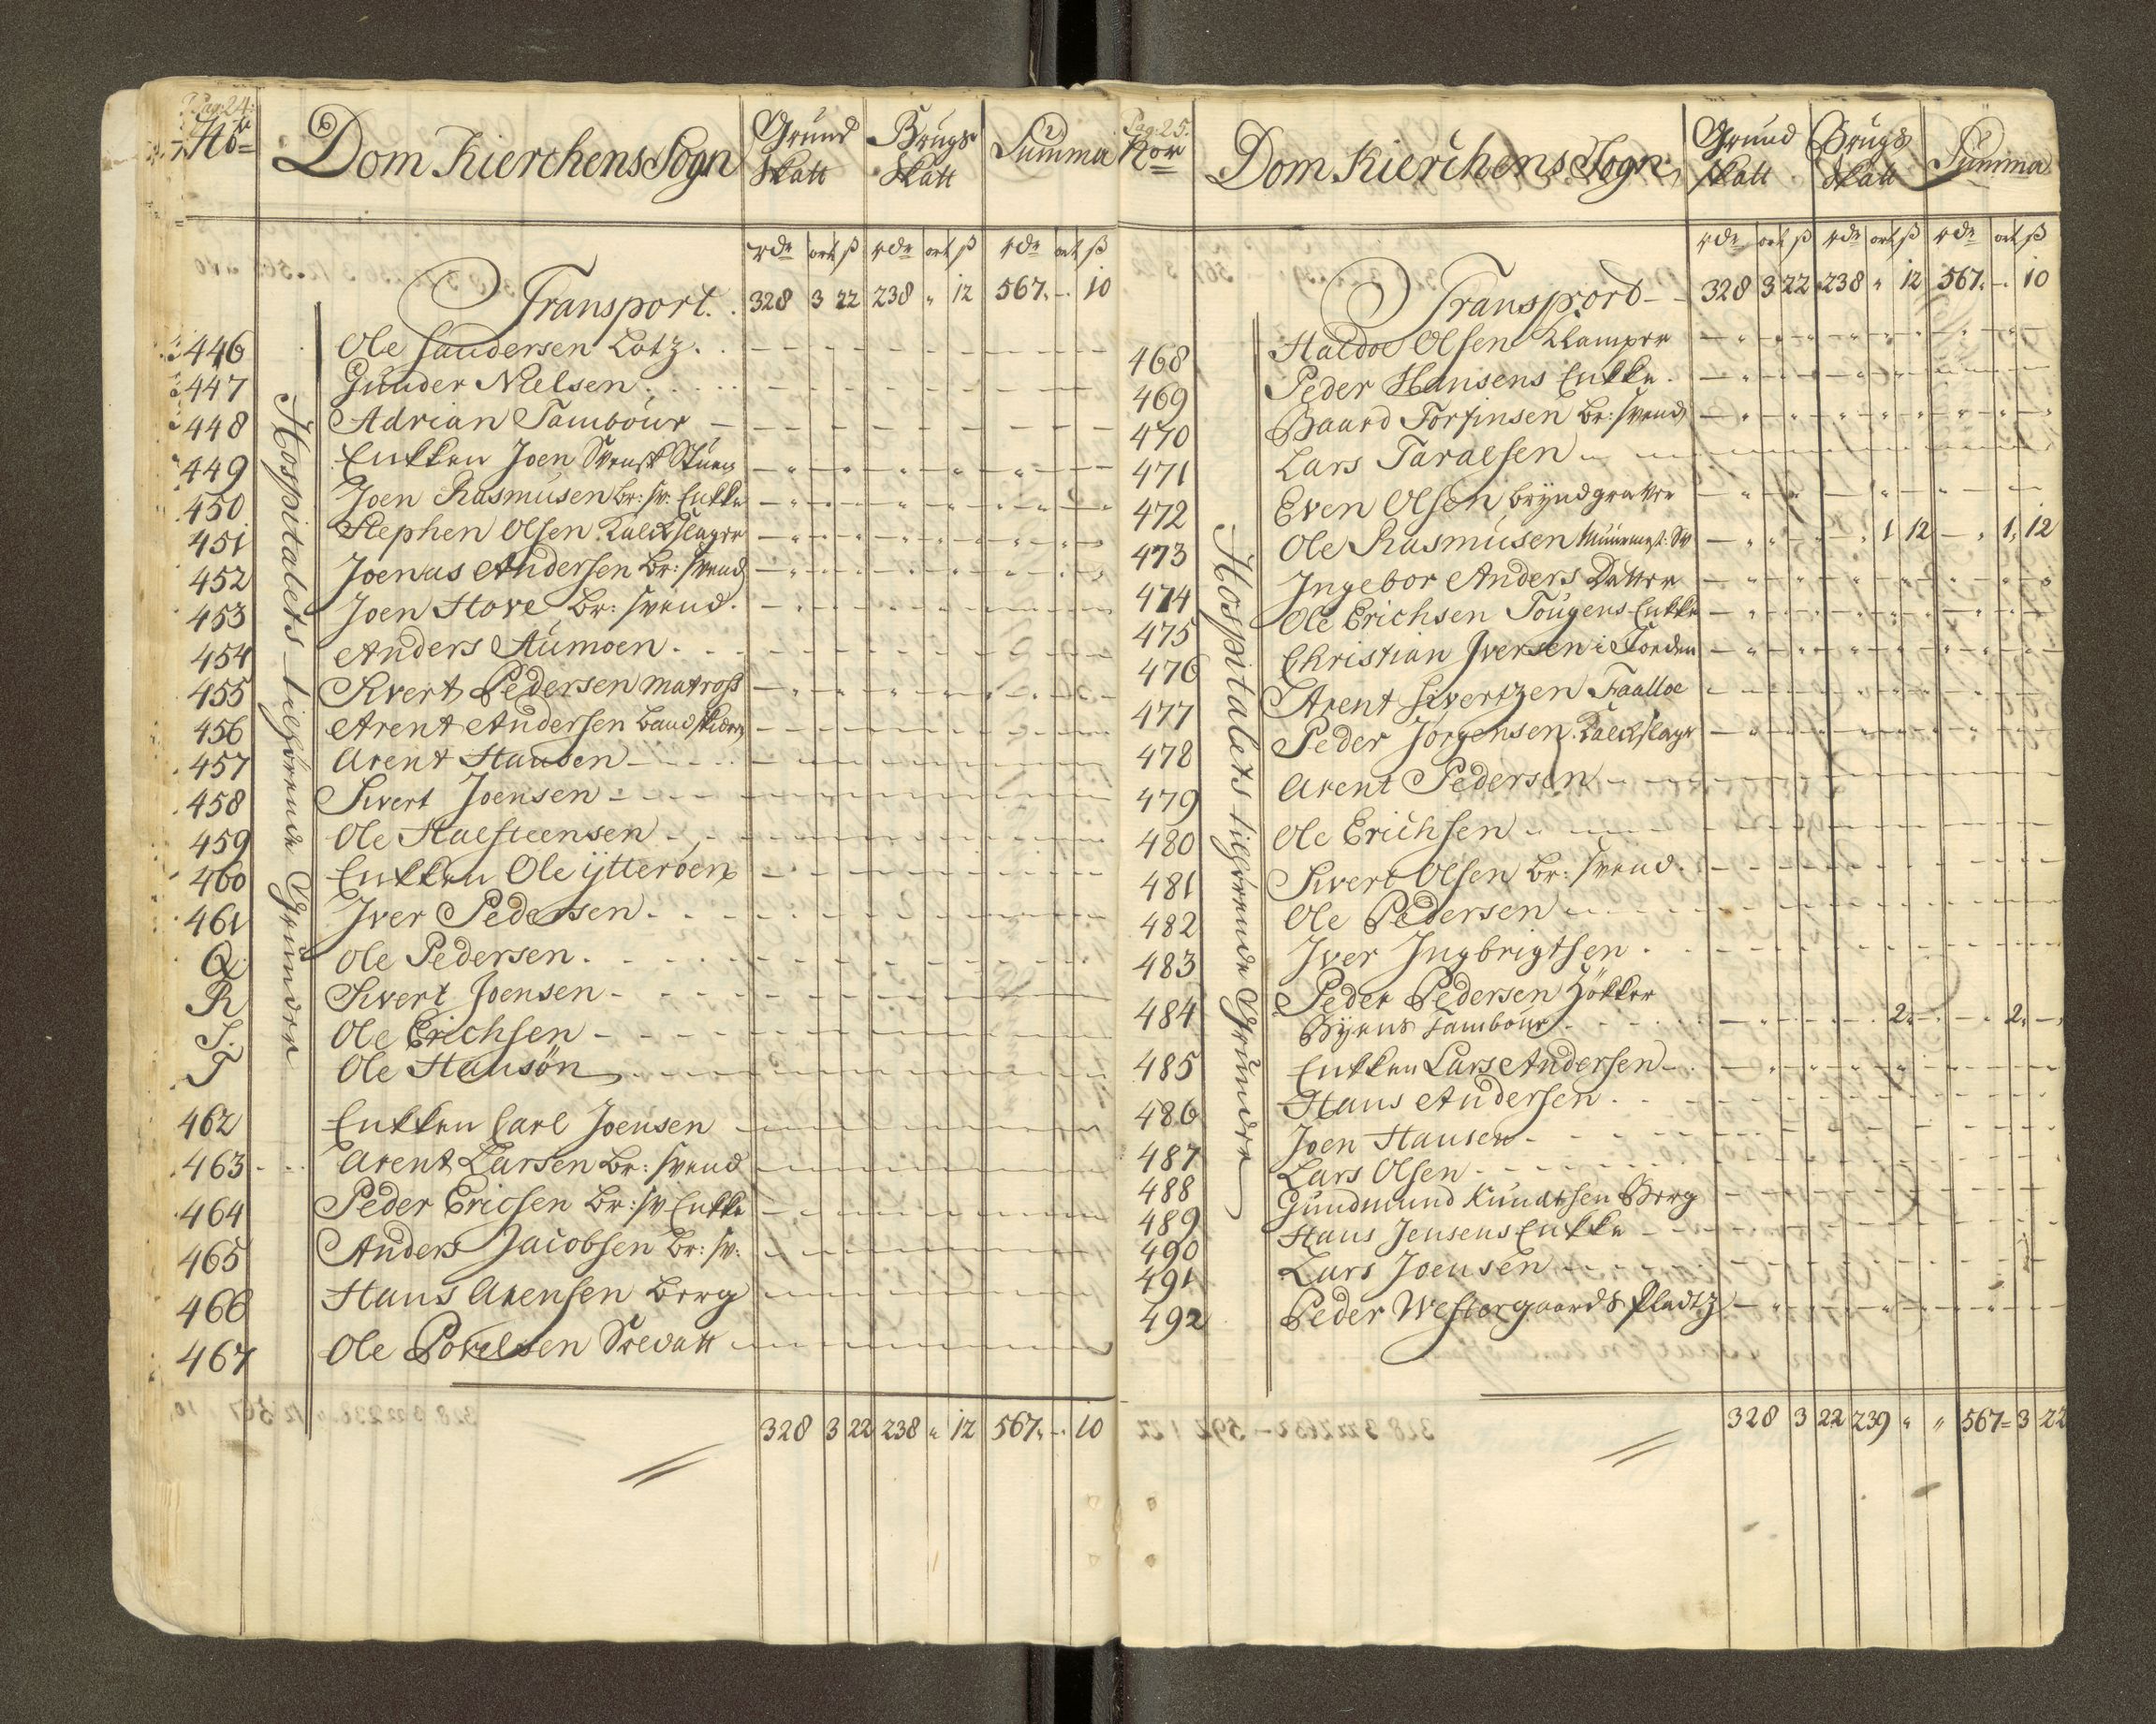 Pag: 24:
No
Dom Kierchens Sogn
Grund Skatt
Brugs Skatt
Summa
rdr ort ß rdr ort ß rdr ort ß
Transport. 328 3 22 238 " 12 567 " - 10
Hospitalets tilhørende Grunder
446 Ole Sandersen Lotz.
447 Gunder Nielsen
448 Adrian Tambour
449 Enkken Joen Svensk
450 Joen Rasmusen br: sv: Enkke
451 Stephen Olsen Kalckslager
452 Joenas Andersen br: svend
453 Joen Hove br: svend.
454 Anders Aumoen.
455 Sivert Pedersen matross
456 Arent Andersen
457 Arent Hansen
458 Sivert Joensen
459 Ole Halsteensen
460 Enkken Ole ytterøen
461 Iver Pedersen
Q Ole Pedersen.
R Sivert Joensen
S. Ole Erichsen
T Ole Hansøn
462 Enkken Carl Joensen
463 Arent Larsen br: svend
464 Peder Ericsen br: sv Enkke
465 Anders Jacobsen br: sv:
466 Hans Arensen berg
467 Ole Povelsen
328 3 22 238 " 12 567 " - 10
Pag: 25.
Dom Kierchens Sogn
Grund Skatt
Brugs Skatt
Summa
rdr ort ß rdr ort ß rdr ort ß
Transport 328 3 22 238 " 12 567 " - 10
Hospitalets tilhørende Grunder
468 Haldo Olsen Klamper
469 Peder Hansens Enkke.
470 Baard Torfinsen br: svend
471 Lars Taraldsen
472 Even Olsen bryndgraver
473 Ole Rasmusen Muurmest: Sv 1 12 1 12
474 Ingebor Anders Datter
475 Ole Erichsen Tougens Enkke
476 Christian Iversen i Fjorden
477 Arent Sivertzen Faalloe
478 Peder Jörgensen Kalckslager
479 Arent Pedersen
480 Ole Erichsen
481 Sivert Olsen br: svend.
482 Ole Pedersen
483 Iver Ingbrigtsen
484 Peder Pedersen Hökker
Byens Tambour 2 " - 2 " -
485 Enkken Lars Andersen
486 Hans Andersen
487 Joen Hansen
488 Lars Olsen
489 Gundmund Knudtsen Berg
490 Hans Jensens Enkke
491 Lars Joensen
492 Peder Westergaards Pladtz
328 3 22 239 " " 567 = 3 22